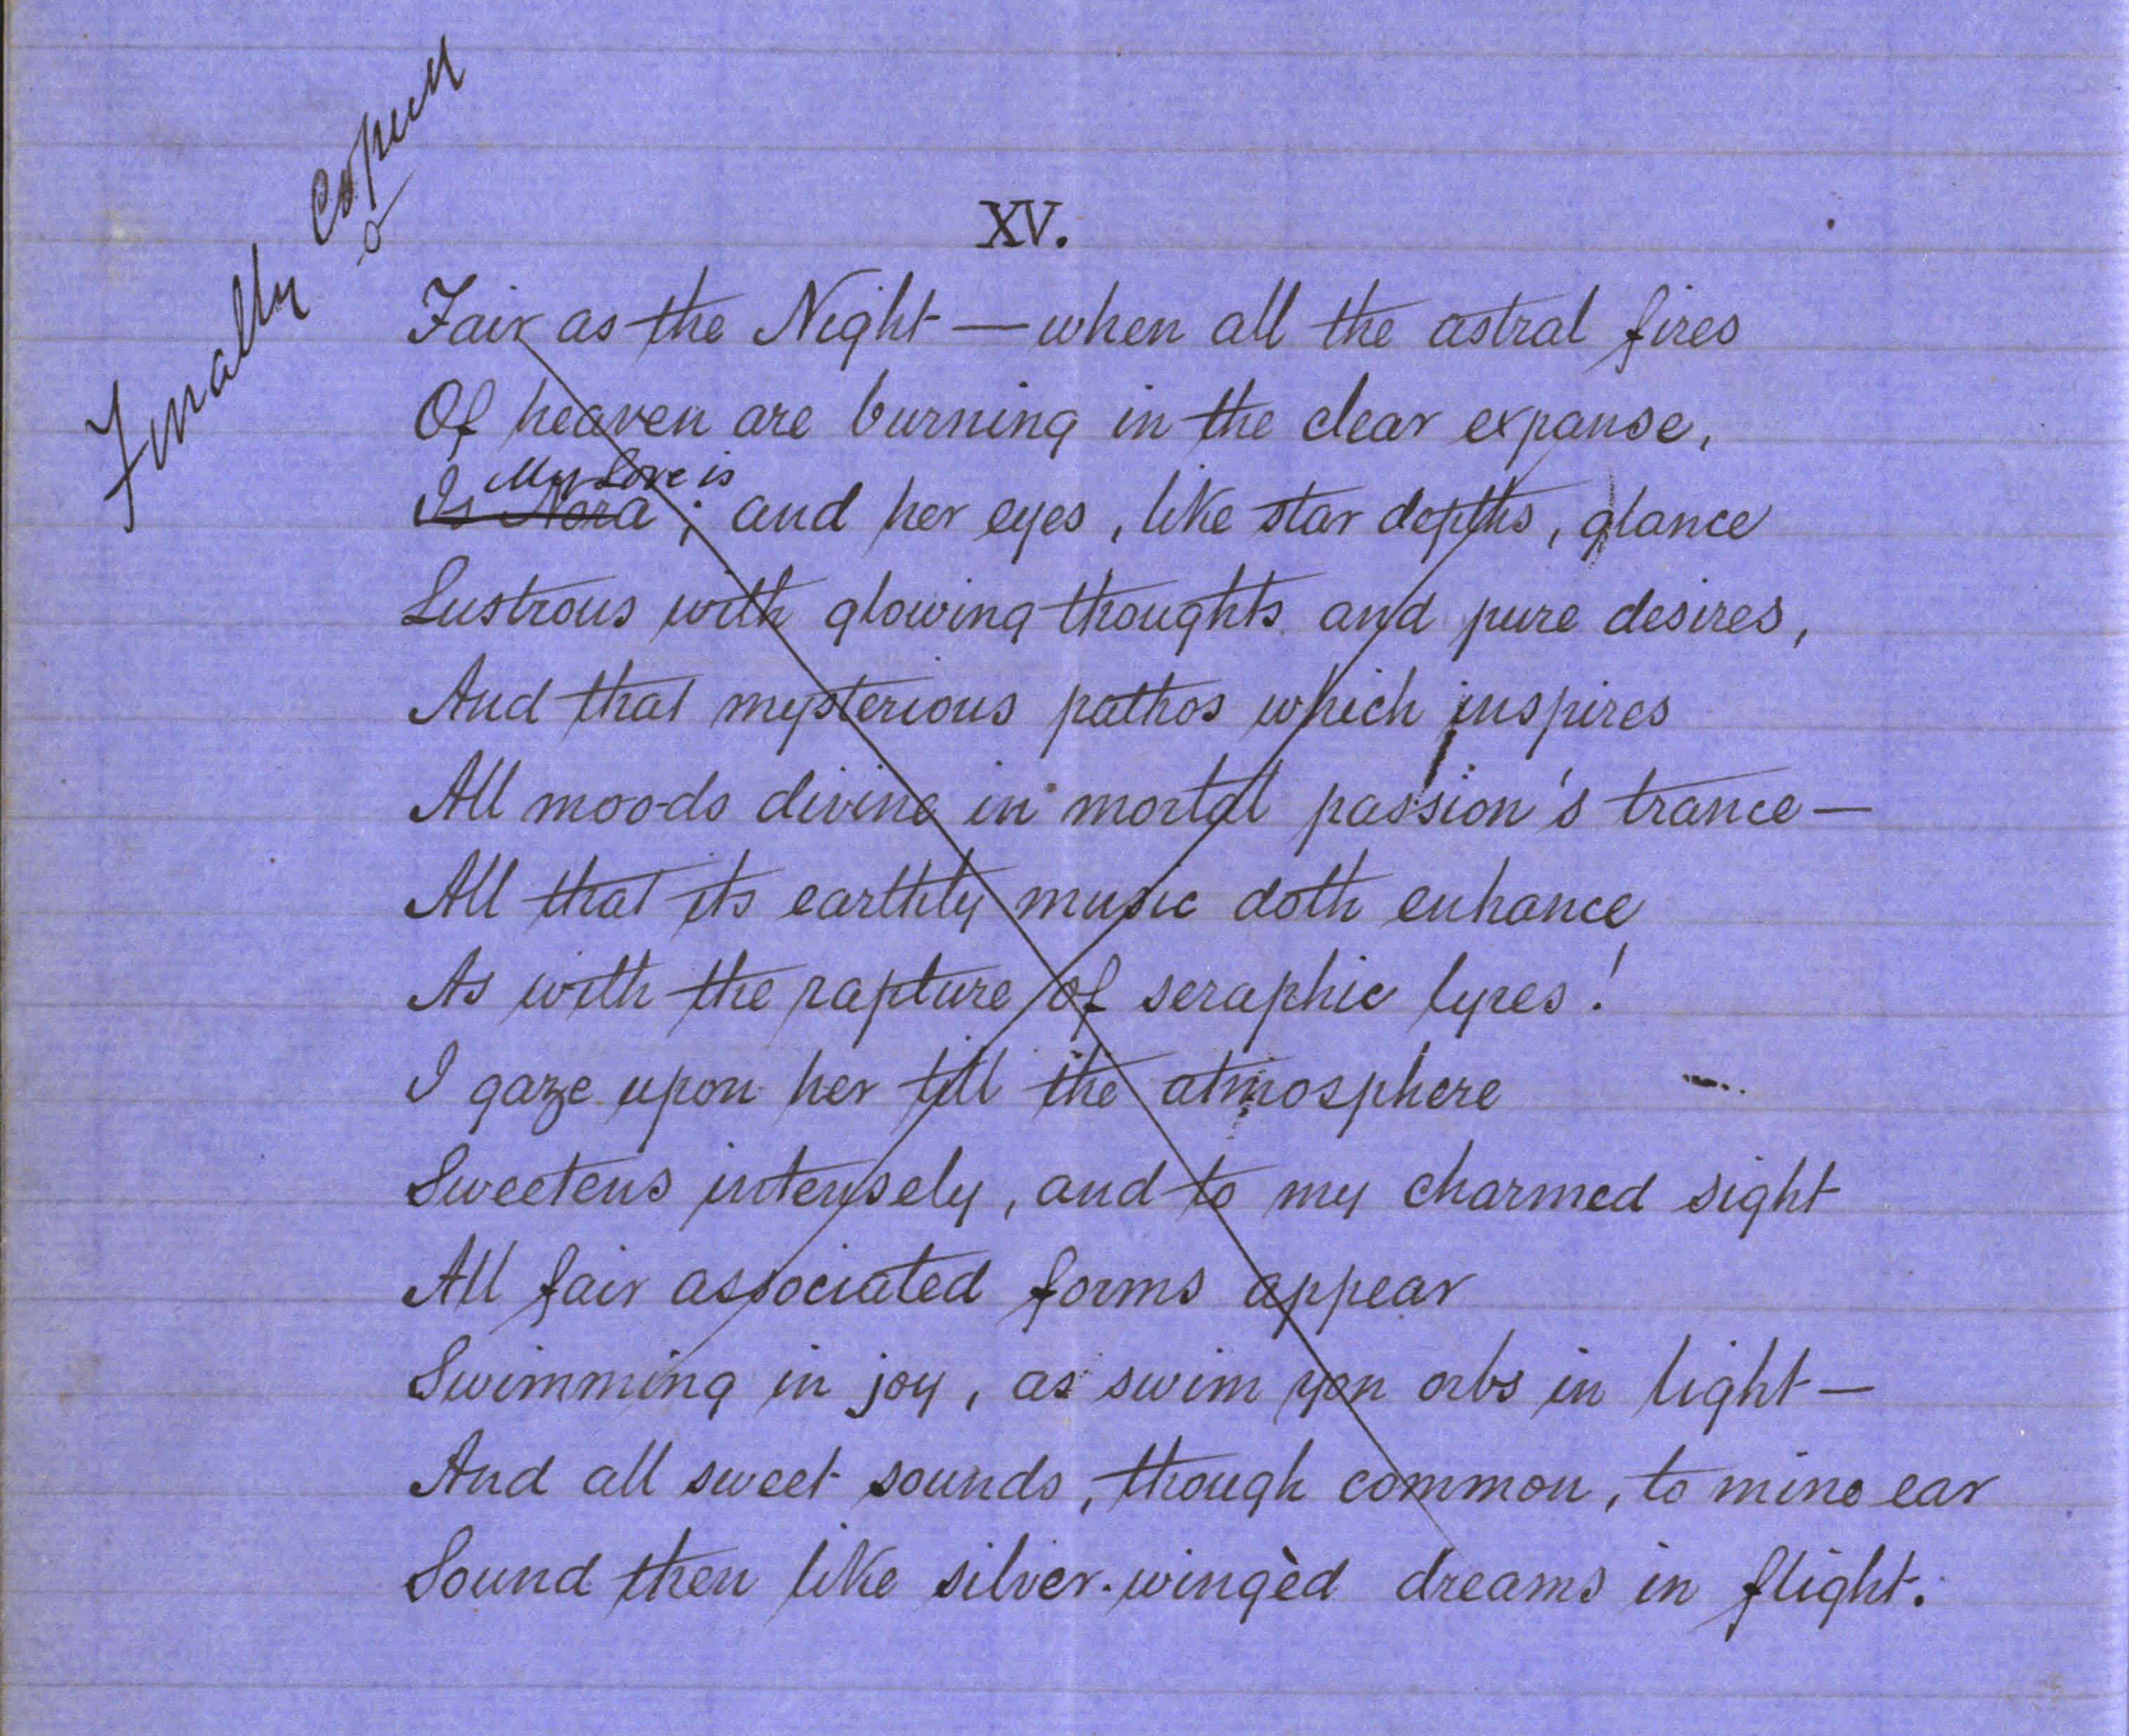 Finally Copied
XV.
Fair as the Night — when all the astral fires
Of heaven are burning in the clear expanse,
My Love is
Is Nora; and her eyes, like star depths, glance
Lustrous with glowing thoughts and pure desires,
And that mysterious pathos which inspires
All moods divine in mortal passion's trance —
All that its earthly music doth enhance
As with the rapture of seraphic lyres!
I gaze upon her till the atmosphere
Sweetens intensely, and to my charmed sight
All fair associated forms appear
Swimming in joy, as swim yon orbs in light —
And all sweet sounds, though common, to mine ear
Sound then like silver-wingèd dreams in flight.